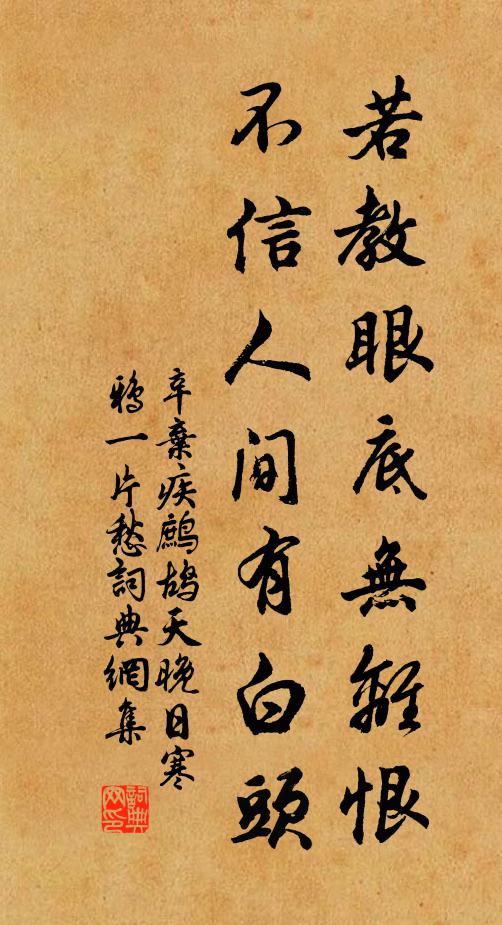 若教眼底無離恨
不信人間有白頭
辛棄疾鷓鴣天晚日寒
鴉一片愁詞典網集
詞典網印